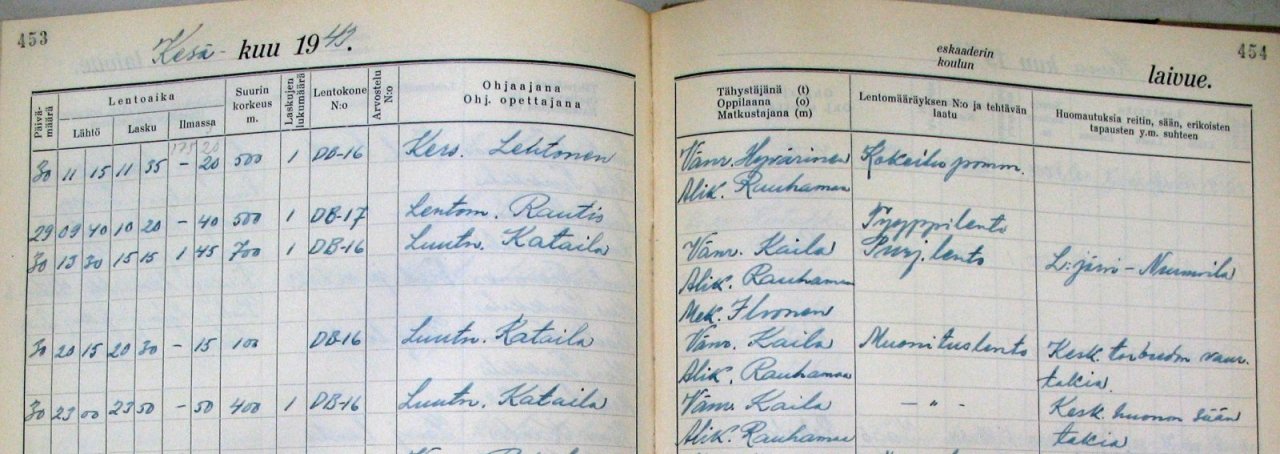 453
Kesä- kuu 1942.
Päivämäärä
Lentoaika
Lähtö Lasku Ilmassa
Suurin korkeus m.
Laskujen lukumäärä
Lentokone N:o
Arvostelu N:o
Ohjaajana
Ohj. opettajana
30 11 15 11 35 - 20 500 1 DB-16 Kers. Lehtonen
29 09 40 10 20 - 40 500 1 DB-17 Lentom. Rautis
30 13 30 15 15 1 45 700 1 DB-16 Luutn. Kataila
30 20 15 20 30 - 15 100 DB-16 Luutn. Kataila
30 23 00 23 50 - 50 400 1 DB-16 Luutn. Kataila
eskaaderin
koulun
laivue.
454
Tähystäjänä (t)
Oppilaana (o)
Matkustajana (m)
Lentomääräyksen N:o ja tehtävän laatu
Huomautuksia reitin, sään, erikoisten tapausten y.m. suhteen
Vänr. Hyvärinen Kokeilu pomm.
Alik. Rauhamaa
Tyyppilento
Vänr. Kaila Siirj. lento L:järvi - Nurmoila
Alik. Rauhamaa
Mek. Ilvonen
Vänr. Kaila Muonituslento Kesk. vaur.
Alik. Rauhamaa takia.
Vänr. Kaila — " — Kesk. huonon sään
Alik. Rauhamaa takia